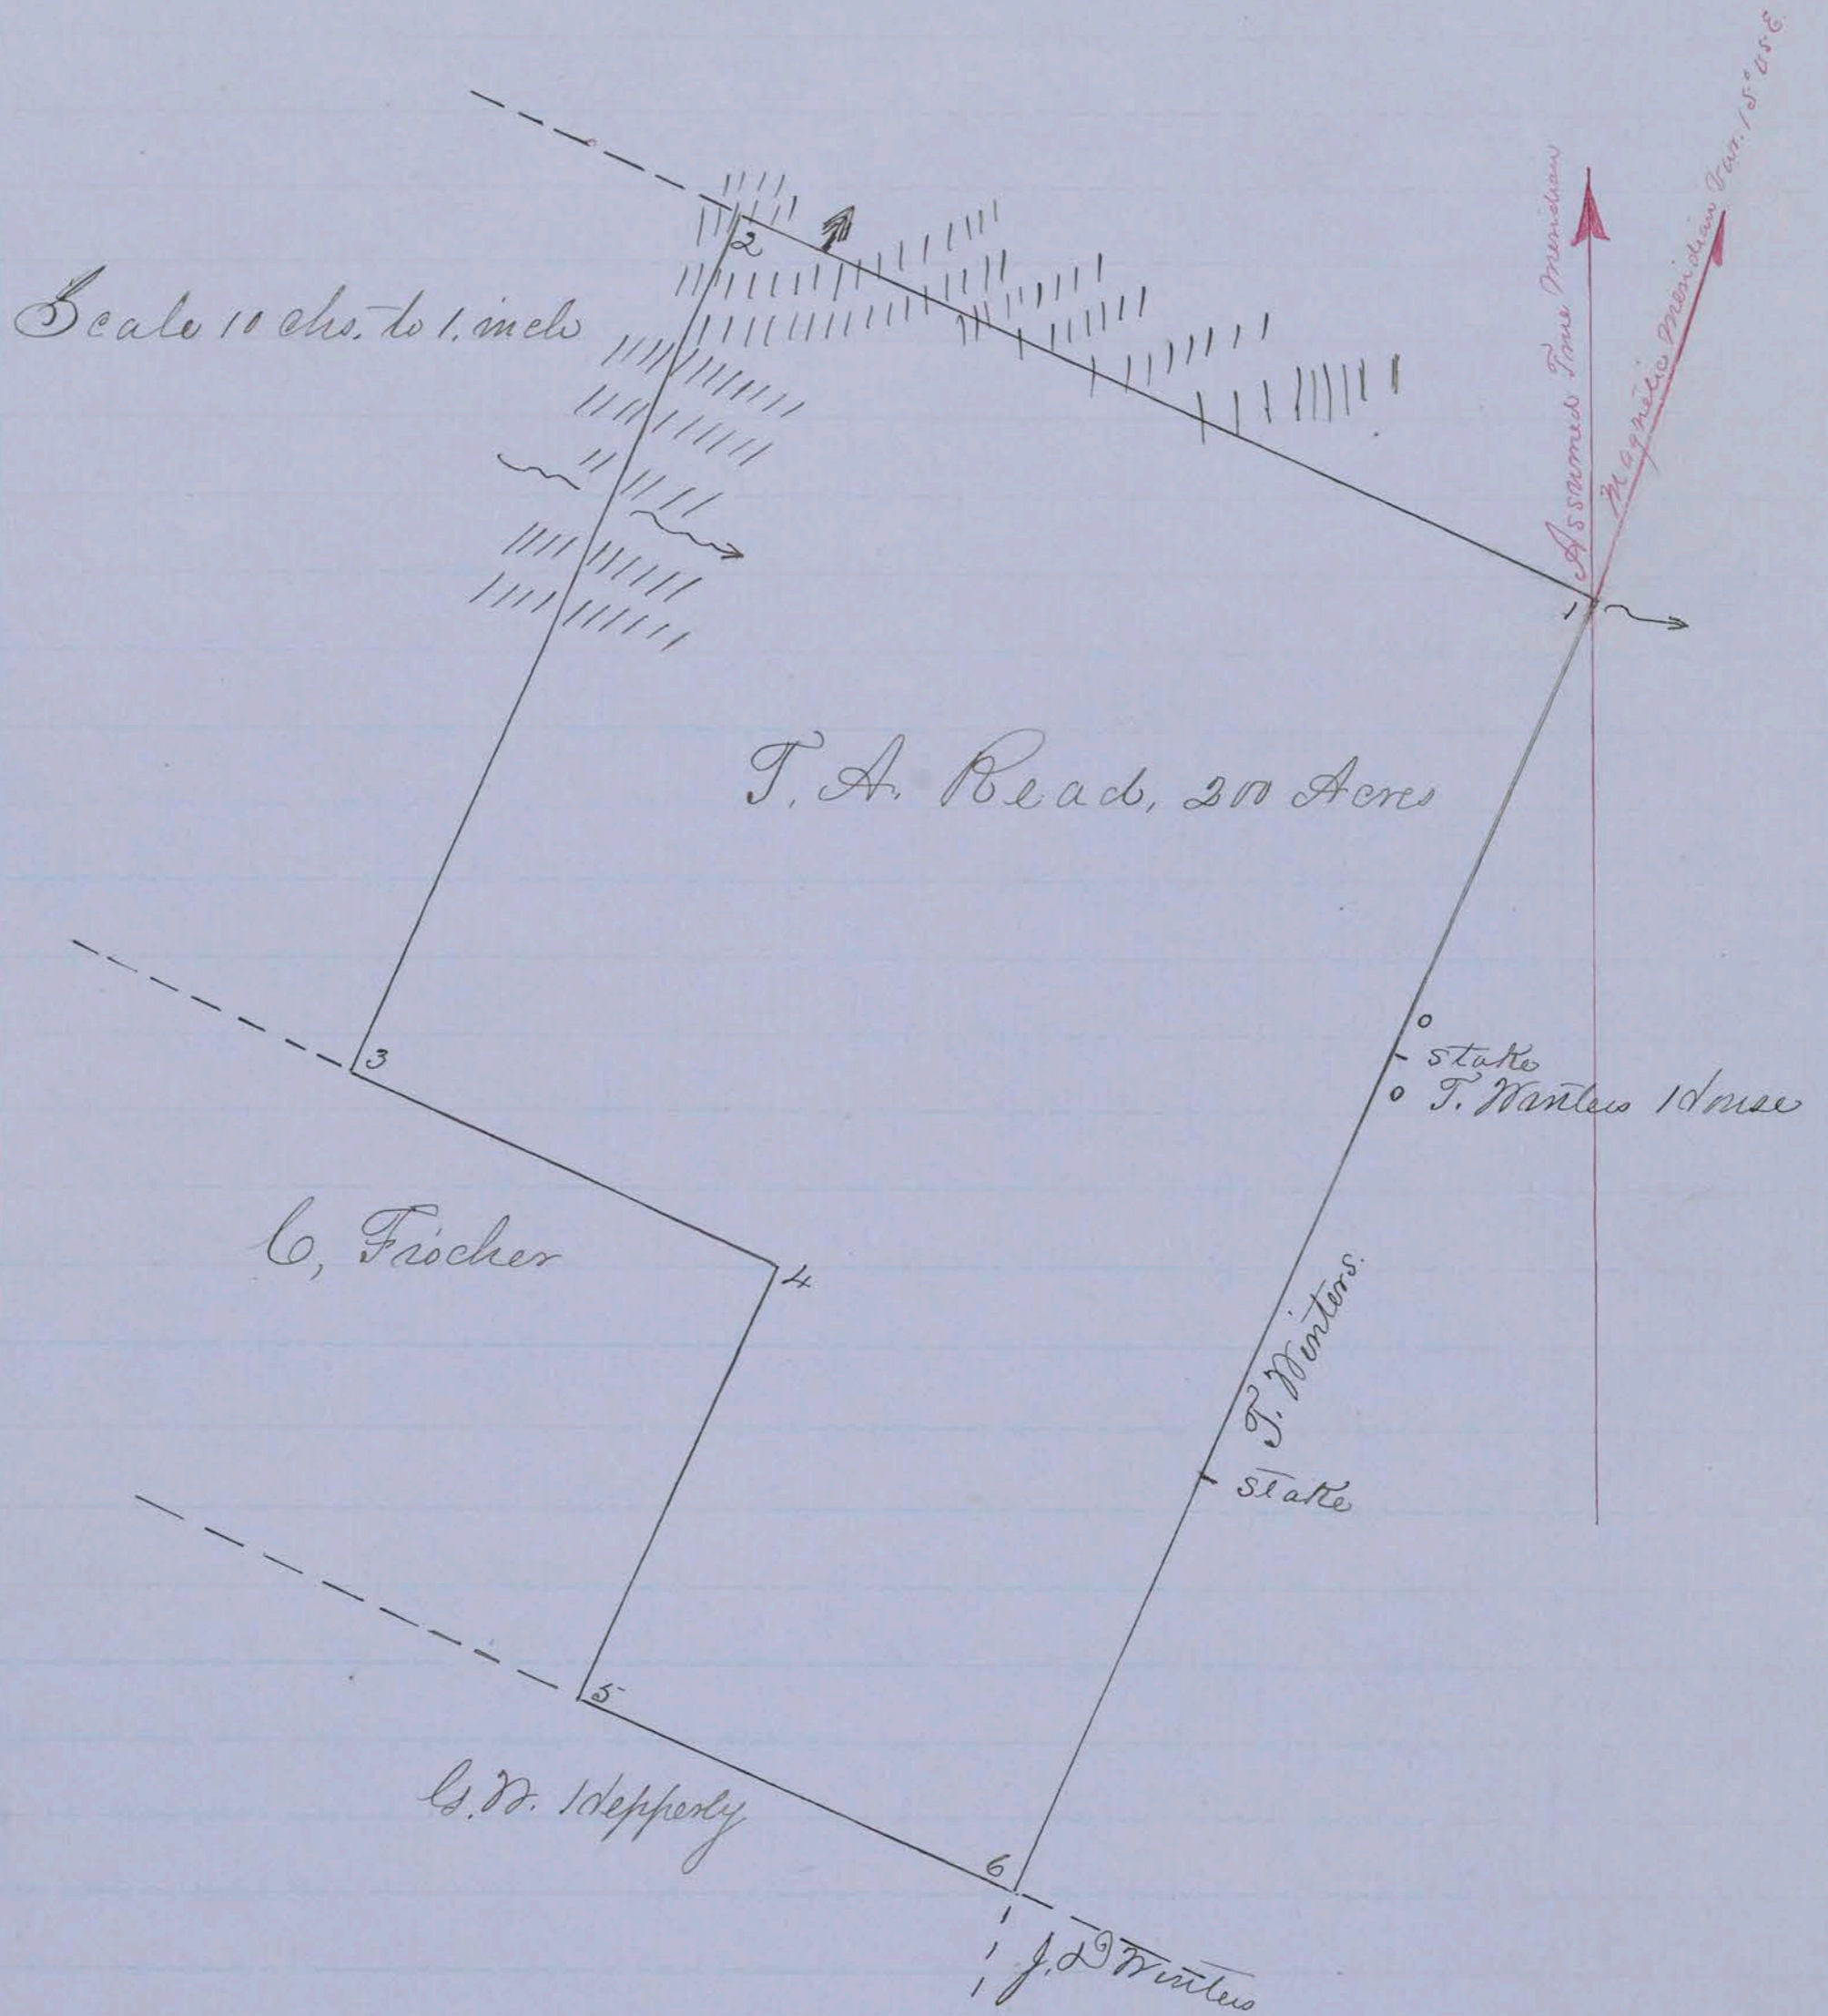 Assumed True Meridian
Magnetic Meridian Var. 15° 05' E.
2
Scale 10 chs. to 1. inch
1
T. A. Read, 200 Acres
stake
T. Winters House
3
C, Fischer
4
T. Winters.
stake
5
G. W. Hepperly
6
J. D Winters